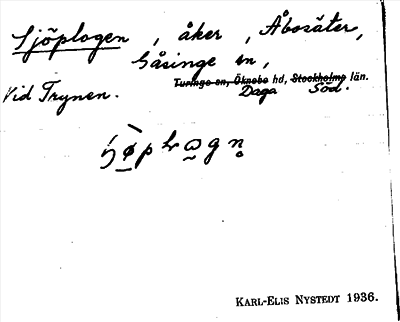 Sjöplogen, åker, Åbosäter,
Gåsinge sn,
Vid Trynen. Turinge sn, Öknebo hd, Stockholms län.
Daga Söd.
KARL-ELIS NYSTEDT 1936.